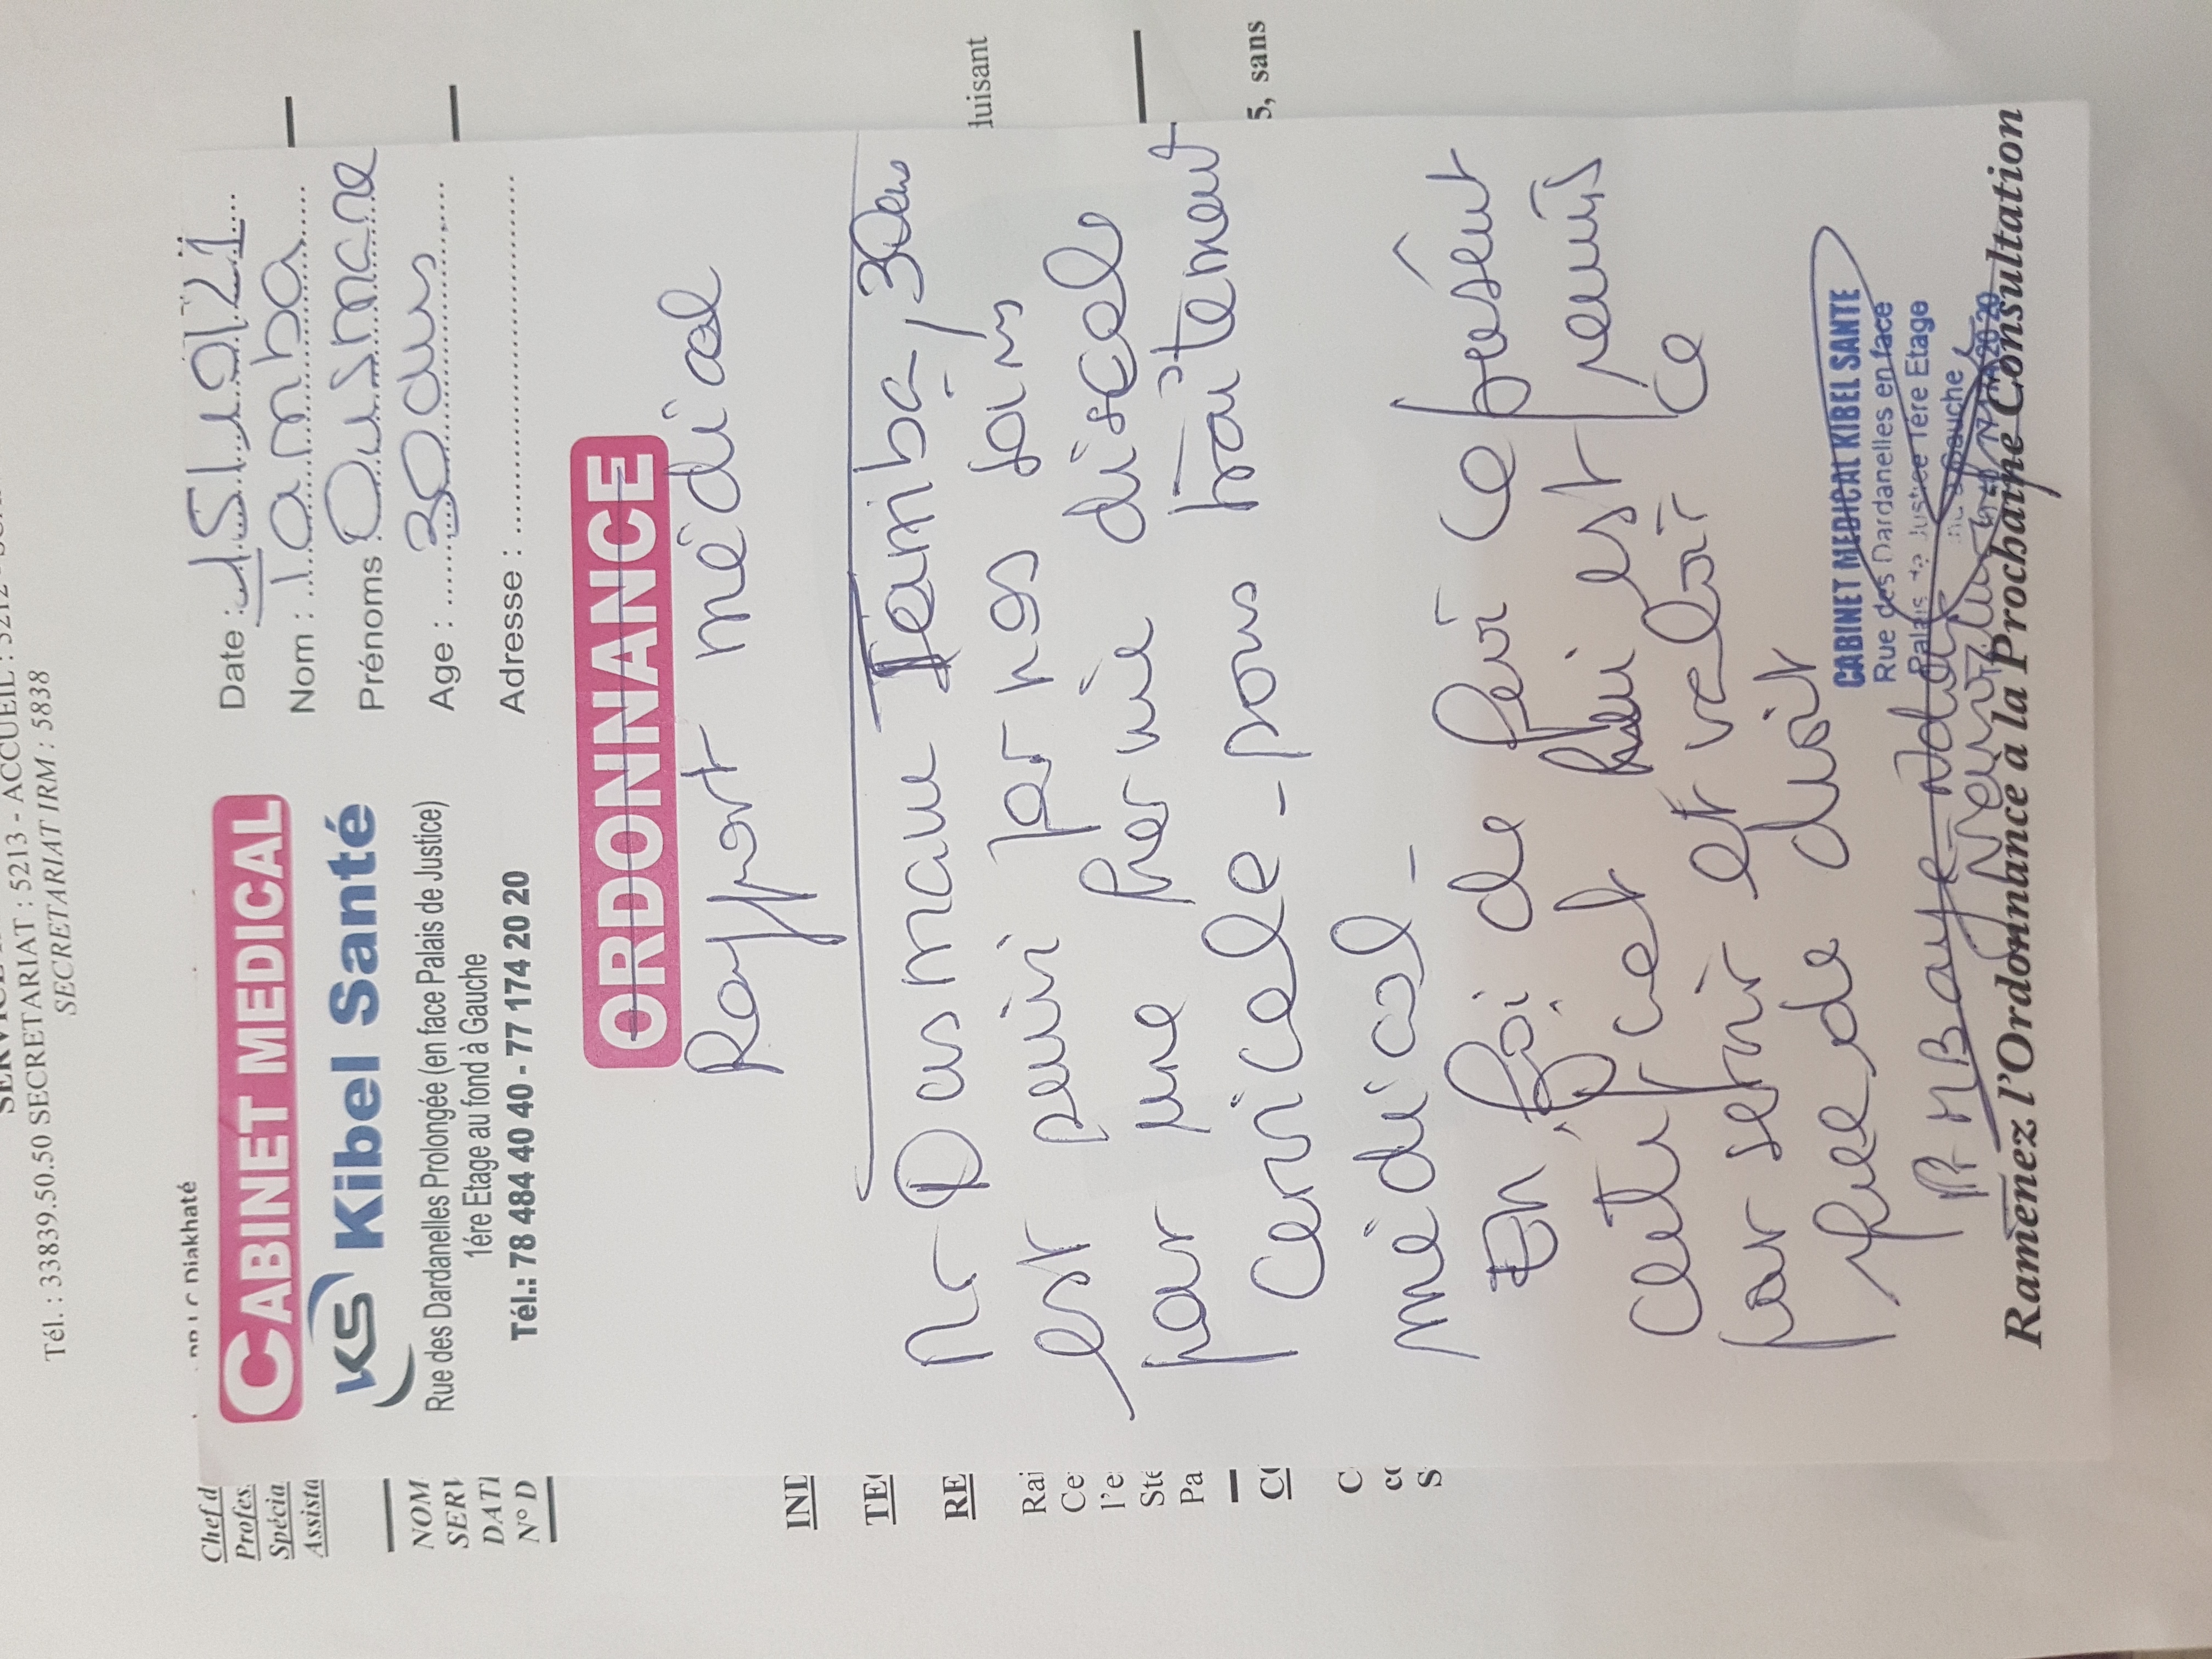 SERVICE
Tél. : 33839.50.50 SECRETARIAT : 5213 - ACCUEIL : 5212
SECRETARIAT IRM : 5838
Chef d
Profes.
Spécia
Assista
Diakhaté
NOM
SERV
DATE
N° D
IND
TEC
RE
Rai
Ce
l'e
Ste
Pa
luisant
5, sans
CABINET MEDICAL
KS Kibel Santé
Rue des Dardanelles Prolongée (en face Palais de Justice)
1ére Etage au fond à Gauche
Tél.: 78 484 40 40 - 77 174 20 20
Date :
Nom : Iamba
Prénoms Ousmane
Age : 30 ans
Adresse :
ORDONNANCE
Rapport médical
Mr Ousmane Iamba, 30ans
est suivi par nos soins
pour une hernie discale
cervicale - sous traitement
médical -
En foi de quoi ce présent
certificat lui est remis
pour servir et valoir ce
que de droit
Pr MBaye
CABINET MEDICAL KIBEL SANTE
Rue des Dardanelles en face
Palais de Justice 1ére Etage
Ramenez l'Ordonnance à la Prochaine Consultation